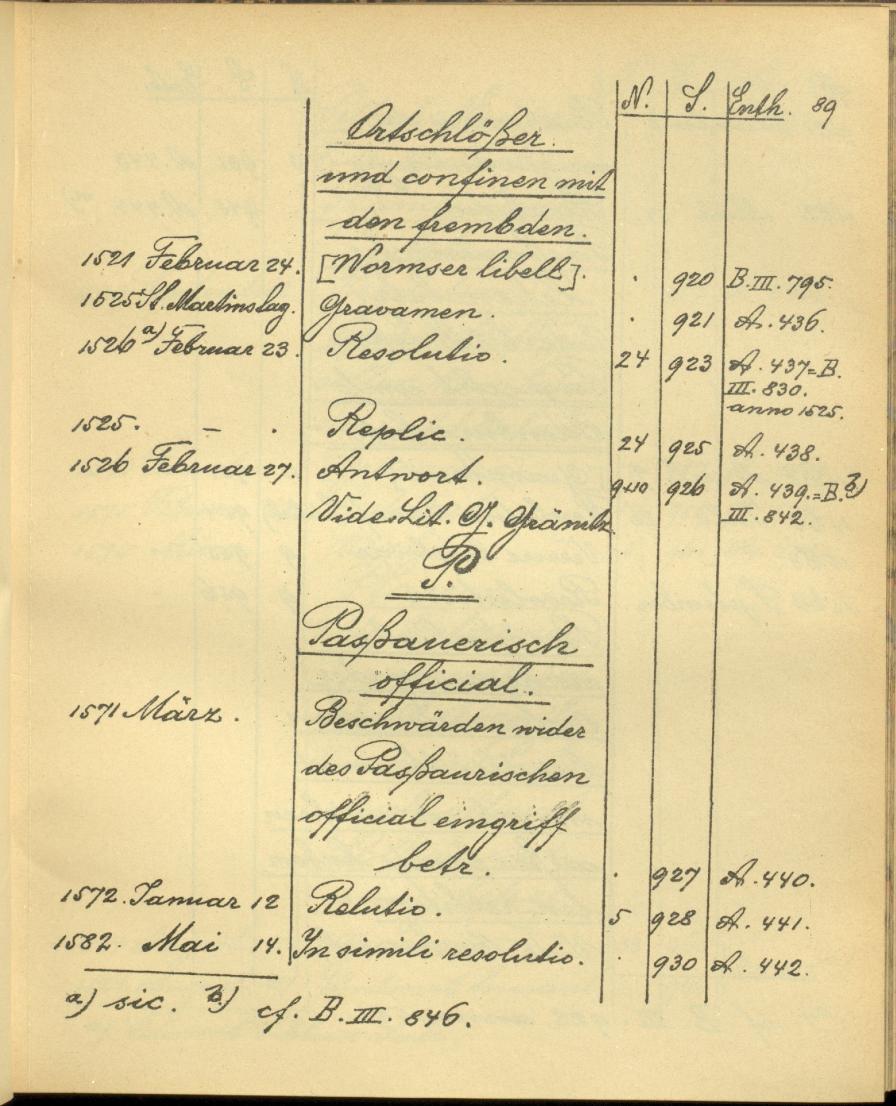 N. S. Enth. 89
Ortschlößer
und confinen mit
den frembden.
1521 Februar 24. [Wormser libell]. . 920 B. III. 795.
1525 St. Martinstag. Gravamen. . 921 A. 436.
1526 a) Februar 23. Resolutio. 24 923 A. 437=B.
III. 830.
anno 1525.
1525. — . Replic. 24 925 A. 438.
1526 Februar 27. Antwort. 9+10 926 A. 439.=B. b)
Vide Lit. G. Gränitz III. 842.
P.
Paßauerisch
official.
1571 März. Beschwärden wider
des Paßaurischen
official eingriff
betr. . 927 A. 440.
1572. Januar 12 Relutio. 5 928 A. 441.
1582. Mai 14. In simili resolutio. . 930 A. 442.
a) sic. b) cf. B. III. 846.